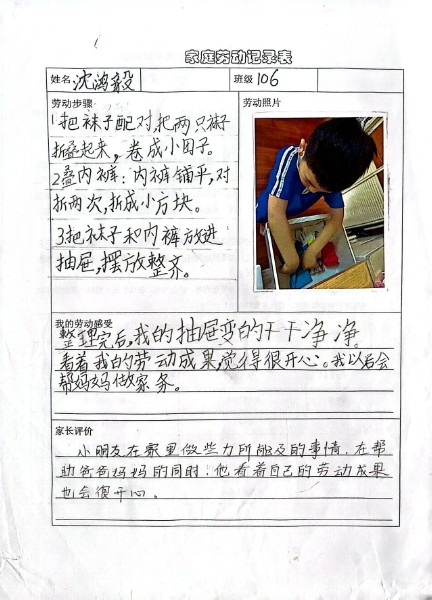 家庭劳动记录表
姓名 沈鸿毅 班级 106
劳动步骤
1.把袜子配对,把两只袜子
折叠起来,卷成小团子。
2.叠内裤:内裤铺平,对
折两次,折成小方块。
3.把袜子和内裤放进
抽屉,摆放整齐。
劳动照片
我的劳动感受
整理完后,我的抽屉变的干干净净。
看着我的劳动成果,觉得很开心。我以后会
帮妈妈做家务。
家长评价
小朋友在家里做些力所能及的事情,在帮
助爸爸妈妈的同时,他看着自己的劳动成果
也会很开心。